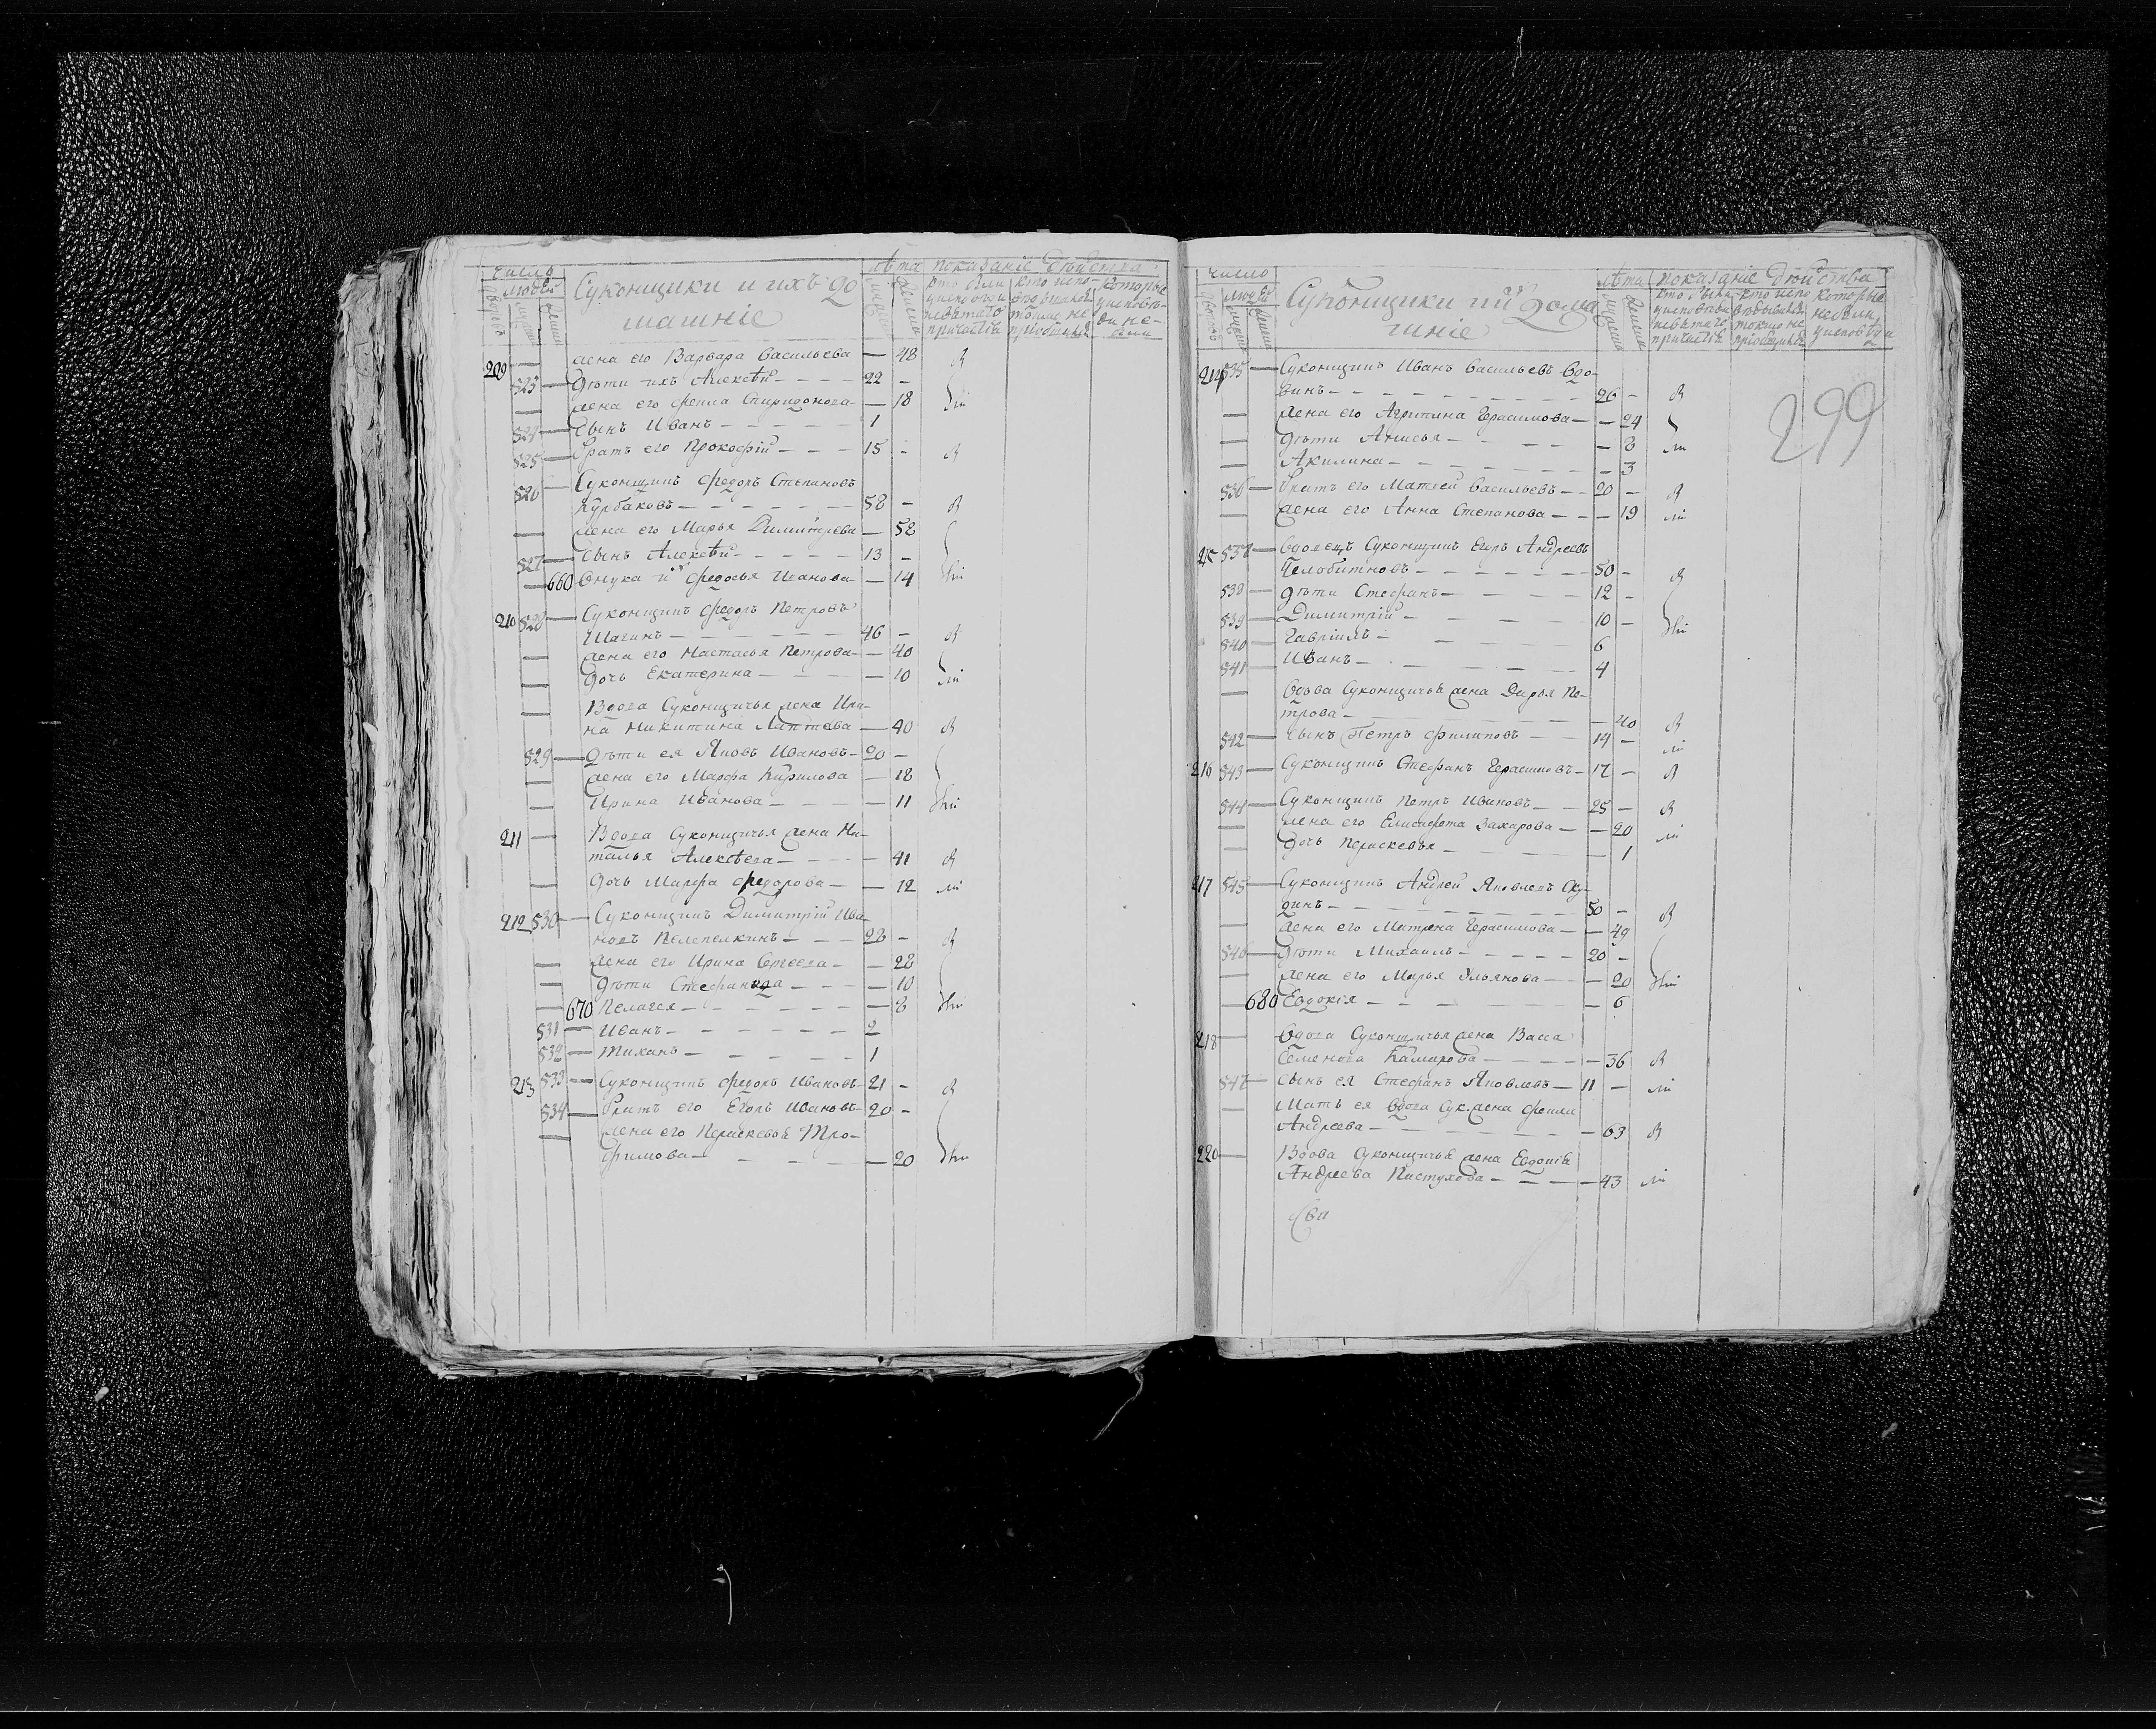 число
людей
дворовъ
мужеска
женска
Суконщики и ихъ до
машніе
лѣта
показаніе дѣйства
кто были
у исповѣди и
святаго
причастія
кто испо
вѣдывался
токмо не
пріобщился
которые
у исповѣ-
ди не-
были
209 — жена его Варвара Васильева — 48 В
523 — дѣти ихъ Алексѣй — 22 —
— жена его Фекла Спиридонова — 18
524 — сынъ Иванъ — 1
525 — братъ его Прокофій — 15 - В
526 — Суконщикъ Федоръ Степановъ
Курбаковъ — 58 — В
— жена его Марья Димитріева — 58
527 — сынъ Алексѣй — 13 —
— 660 Внука и͏хъ Федосья Иванова — 14
210 528 — Суконщикъ Федоръ Петровъ
Шагинъ — 46 — В
— жена его Настасья Петрова — 40
— дочь Екатерина — 10
— Вдова Суконщичья жена Ири-
на Никитина Лаптева — 40 В
529 — дѣти ея Яковъ Ивановъ — 20 —
— жена его Марфа Кирилова — 18
— Ирина Иванова — 11
211 — Вдова Суконщичья жена На-
талья Алексѣева — 41 В
— дочь Марфа Федорова — 12
212 530 — Суконщикъ Димитрій Ива-
новъ Пелепелкинъ — 28 — В
— жена его Ирина Сергеева — 28
— дѣти Стефанида — 10
— 670 Пелагея — 8
531 — Иванъ — 2
532 — Тиханъ — 1
213 533 — Суконщикъ Федоръ Ивановъ — 21 — В
534 — братъ его Егоръ Ивановъ — 20 —
— жена его Параскевья Тро-
фимова — 20
число
людей
дворовъ
мужеска
женска
Суконщики и ихъ дома
шніе
лѣта
мужеска
женска
показаніе дѣйства
кто были
у исповѣди
и святаго
причастія
кто испо
вѣдывался
токмо не
пріобщился
которые
не были
у исповѣди
299
214 535 — Суконщикъ Иванъ Васильевъ Вдо-
винъ — 26 — В
— жена его Агрипина Герасимова — 24
— дѣти Анисья — 8
— Акилина — 3
536 — братъ его Матвей Васильевъ — 20 — В
— жена его Анна Степанова — 19
215 537 — Вдовецъ Суконщикъ Егоръ Андреевъ
Челобитновъ — 50 — В
538 — дѣти Стефанъ — 12 -
539 — Димитрій — 10 —
540 — Гавріилъ — 6
541 — Иванъ — 4
— Вдова Суконщичья жена Дарья Пе-
трова — 40 В
542 — сынъ Петръ Филиповъ — 14 —
216 543 — Суконщикъ Стефанъ Герасимовъ — 17 — В
544 — Суконщикъ Петръ Ивановъ — 25 — В
— жена его Елисавета Захарова — 20
— дочь Параскевья — 1
217 545 — Суконщикъ Андрей Яковлевъ Ску-
динъ — 50 — В
— жена его Матрена Герасимова — 49
546 — дѣти Михаилъ — 20 —
— жена его Марья Ульянова — 20
— 680 Евдокія — 6
218 — Вдова Суконщичья жена Васса
Семенова Камарова — 36 В
547 — сынъ ея Стефанъ Яковлевъ — 11 —
— Мать ея вдова Сук. жена Фекла
Андреева — 63 В
220 — Вдова Суконщичья жена Евдокія
Андреева Пастухова — 43